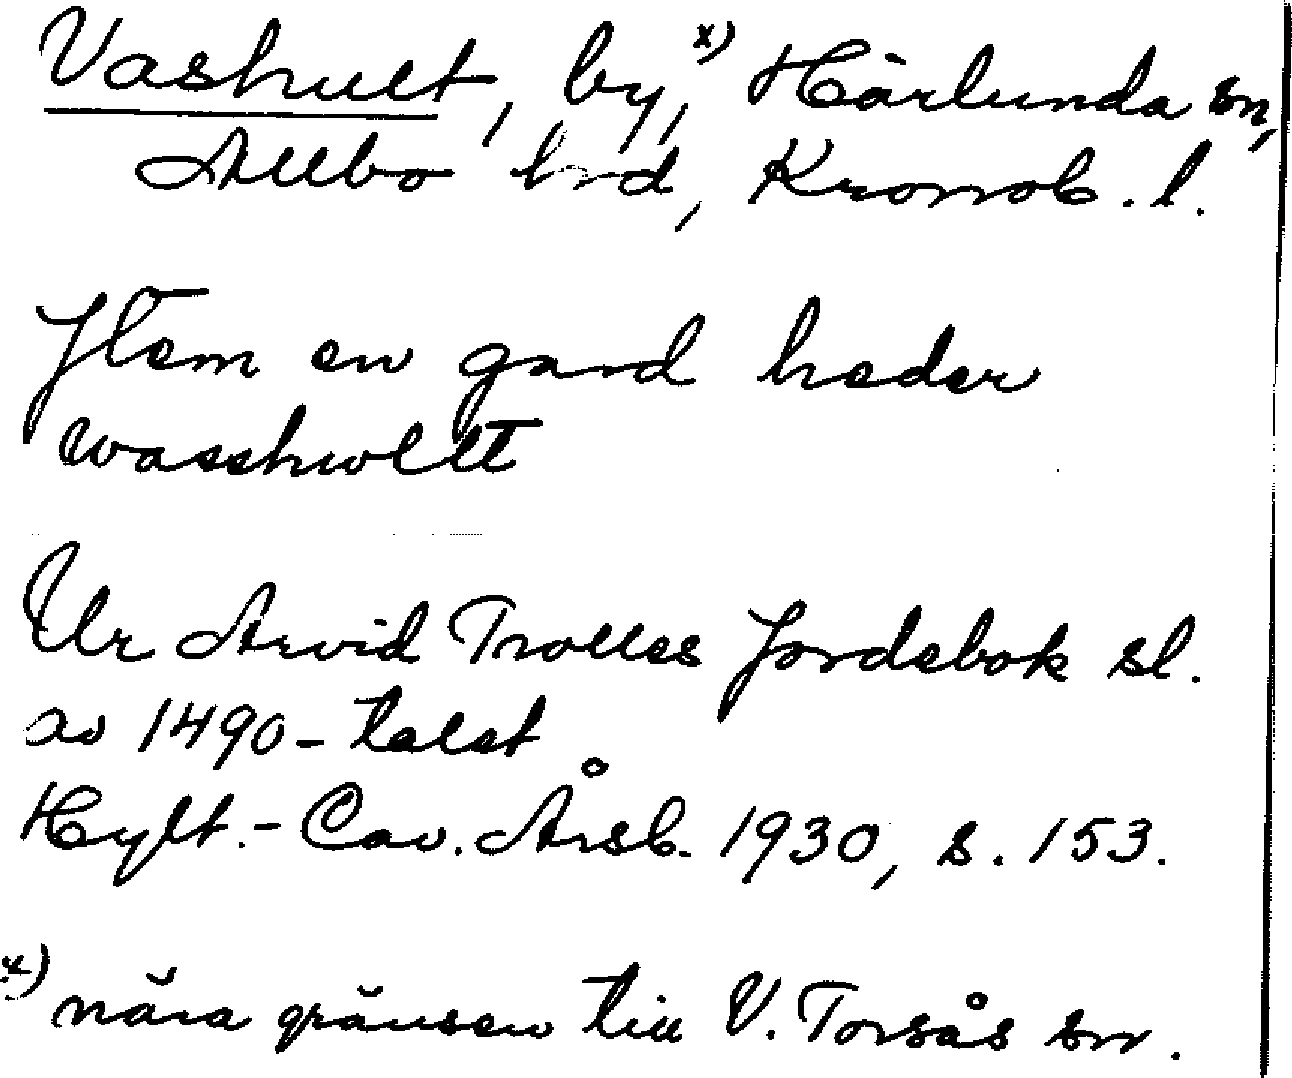 Vashult, by,x) Härlunda sn,
Allbo hrd, Kronob. l.
Jtem en gard heder
wasshwltt
Ur Arvid Trolles Jordebok sl.
av 1490-talet
Hylt.-Cav. Årsb. 1930, s. 153.
x) nära gränsen till V. Torsås sn.